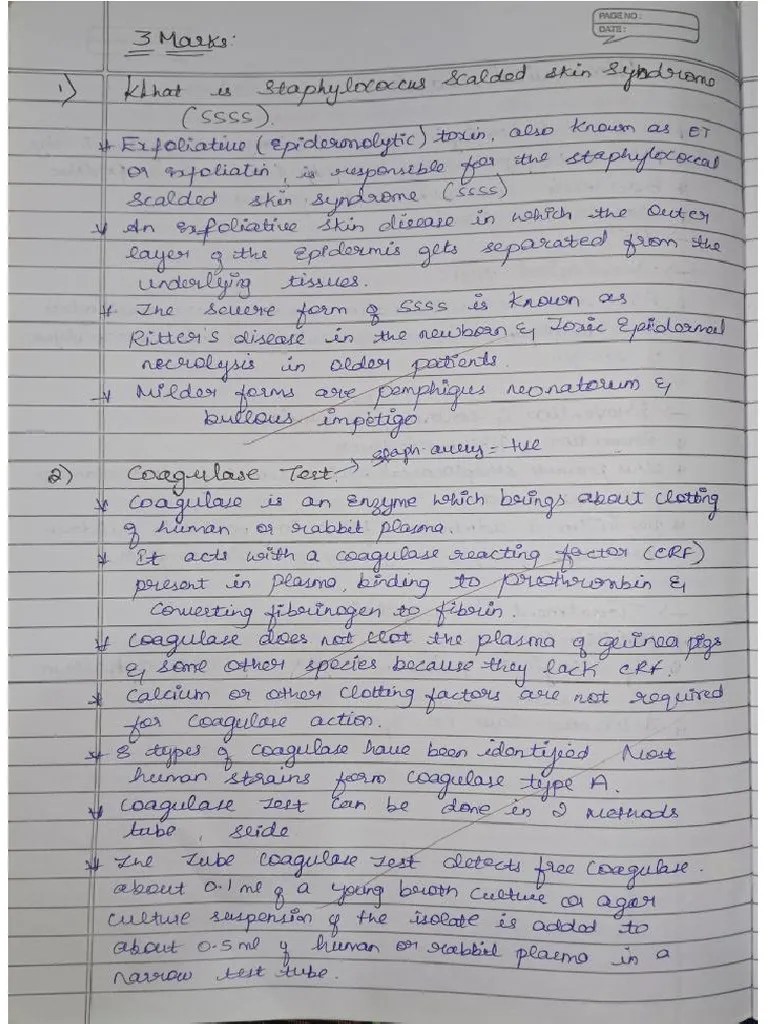 PAGE NO:
DATE:
3 Marks:
1) What is Staphylococcus Scalded Skin Syndrome
(SSSS).
* Exfoliative (Epidermolytic) toxin, also known as ET
or exfoliatin, is responsible for the staphylococcal
scalded skin syndrome (SSSS)
* An exfoliative skin disease in which the outer
layer of the Epidermis gets separated from the
underlying tissues.
* The severe form of SSSS is known as
Ritter's disease in the newborn & Toxic Epidermal
necrolysis in older patients.
* Milder forms are pemphigus neonatorum &
bullous impetigo.
2) Coagulase Test. → staph aurey = +ve
* Coagulase is an enzyme which brings about clotting
of human or rabbit plasma.
* It acts with a coagulase reacting factor (CRF)
present in plasma, binding to prothrombin &
converting fibrinogen to fibrin.
* Coagulase does not clot the plasma of guinea pigs
& some other species because they lack CRF.
* Calcium or other clotting factors are not required
for coagulase action.
* 8 types of coagulase have been identified Most
human strains form coagulase type A.
* Coagulase Test can be done in 2 methods
tube, slide
* The Tube Coagulase Test detects free coagulase.
about 0.1 ml of a young broth culture or agar
culture suspension of the isolate is added to
about 0.5 ml of human or rabbit plasma in a
narrow test tube.